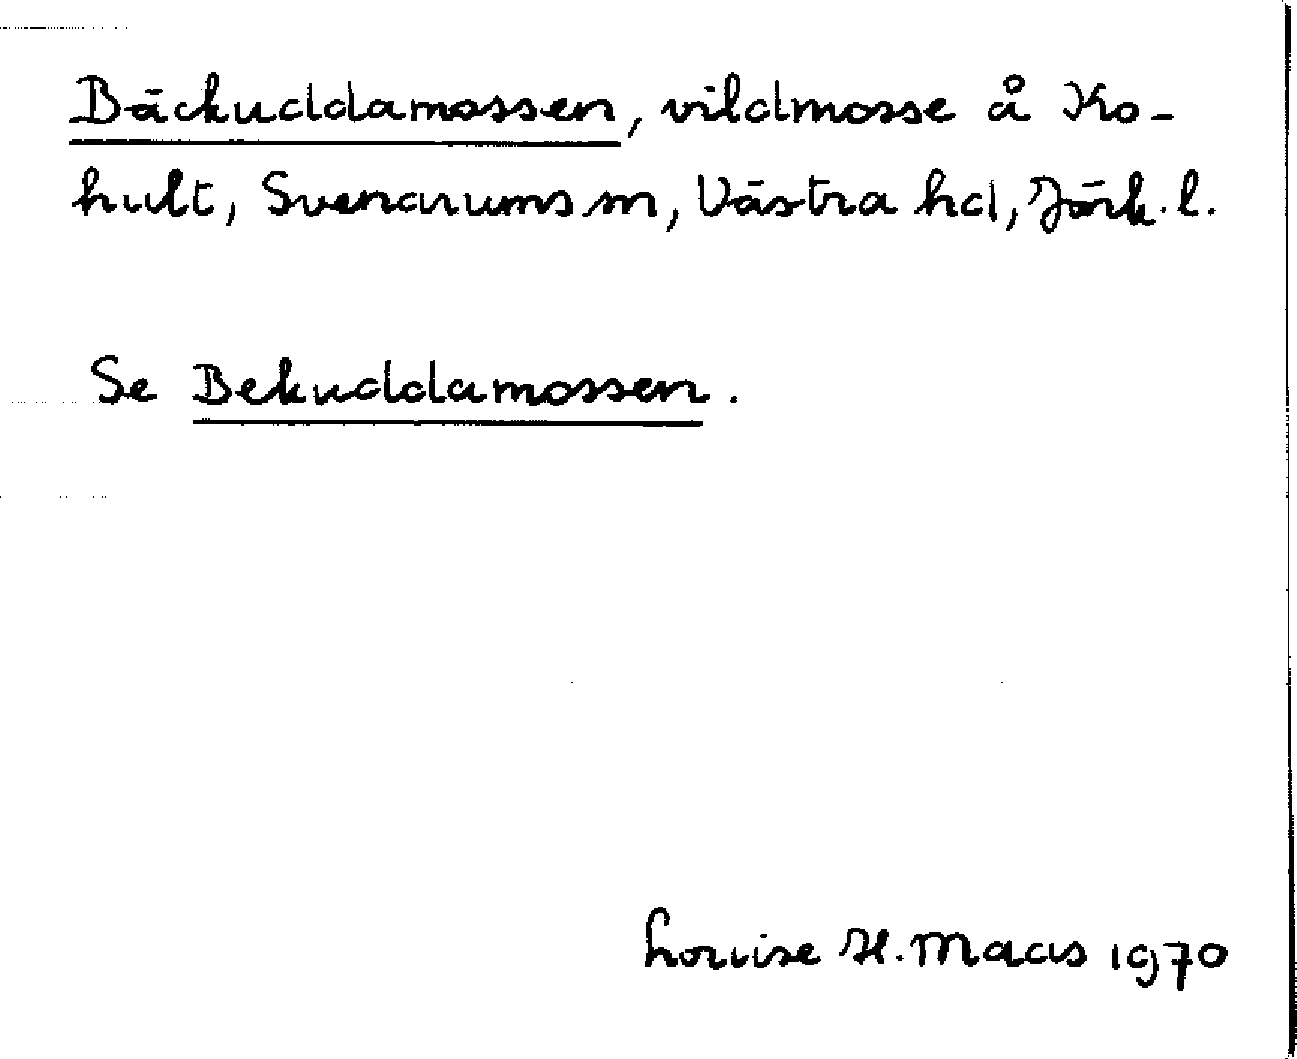 Bäckuddamossen, vildmosse å Ko-
hult, Svenarums sn, Västra hd, Jönk. l.
Se Bekuddamossen.
Louise H. Maas 1970